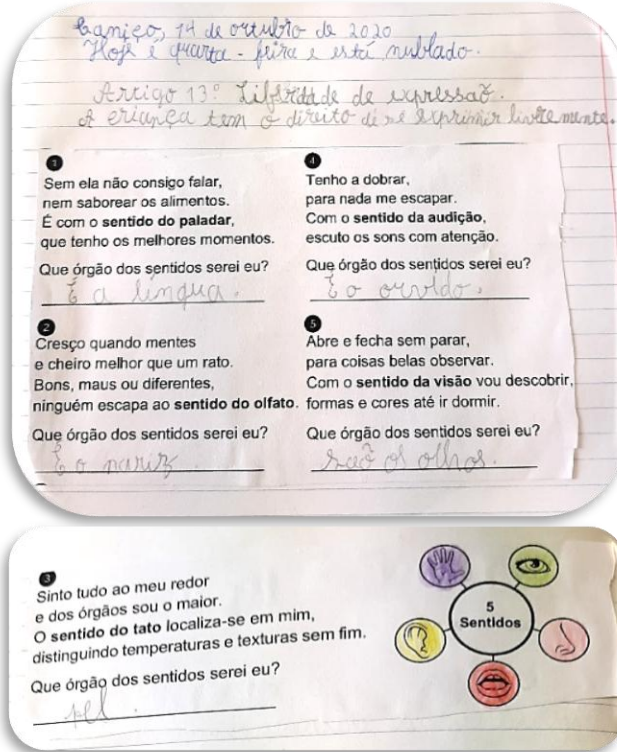 Caniço, 14 de outubro de 2020
Hoje é quarta-feira e está nublado.
Artigo 13º Liberdade de expressão.
A criança tem o direito de se exprimir livremente.
1
Sem ela não consigo falar,
nem saborear os alimentos.
É com o sentido do paladar,
que tenho os melhores momentos.
Que órgão dos sentidos serei eu?
É a língua.
2
Cresço quando mentes
e cheiro melhor que um rato.
Bons, maus ou diferentes,
ninguém escapa ao sentido do olfato.
Que órgão dos sentidos serei eu?
É o nariz
4
Tenho a dobrar,
para nada me escapar.
Com o sentido da audição,
escuto os sons com atenção.
Que órgão dos sentidos serei eu?
É o ouvido.
5
Abre e fecha sem parar,
para coisas belas observar.
Com o sentido da visão vou descobrir,
formas e cores até ir dormir.
Que órgão dos sentidos serei eu?
São os olhos.
3
Sinto tudo ao meu redor
e dos órgãos sou o maior.
O sentido do tato localiza-se em mim,
distinguindo temperaturas e texturas sem fim.
Que órgão dos sentidos serei eu?
pel.
5
Sentidos